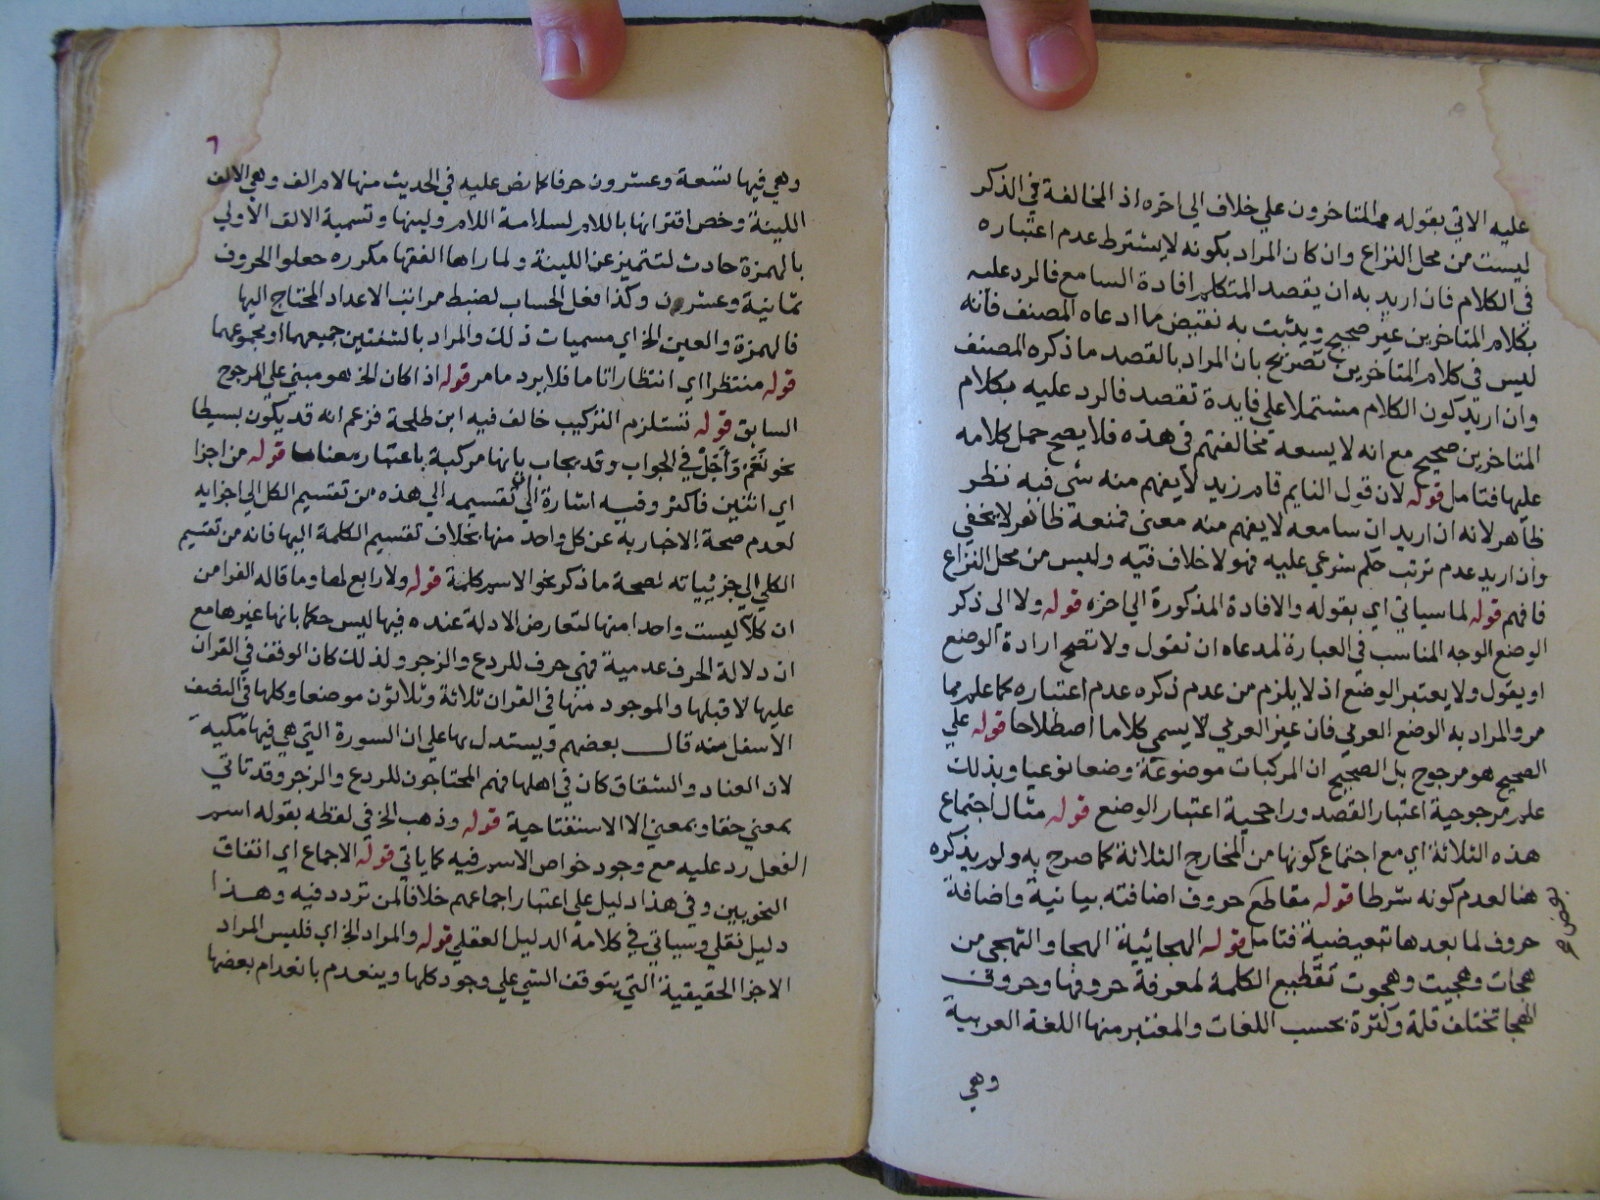 عليه الاتي بقوله عم المتاخرون علي خلاف الي اخره اذ المخالفة في الذكر
ليست من محل النزاع وان كان المراد بكونه لا يشترط عدم اعتباره
في الكلام فان اريد به ان يقصد المتكلم افادة السامع فالرد عليه
بكلام المتاخرين غير صحيح ويثبت به نقيض ما ادعاه المصنف فانه
ليس في كلام المتاخرين تصريح بان المراد بالقصد ما ذكره المصنف
وان اريد كون الكلام مشتملا علي فايدة تقصد فالرد عليه بكلام
المتاخرين صحيح مع انه لا يسعه مخالفتهم في هذه فلا يصح حمل كلامه
عليها فتامل قوله لان قول النايم قام زيد لا يفهم منه شي فيه نظر
ظاهر لانه ان اريد ان سامعه لا يفهم منه معني فمنعه ظاهر لا يخفي
وان اريد عدم ترتب حكم شرعي عليه فهو لا خلاف فيه وليس من محل النزاع
فافهم قوله لما سياتي اي بقوله والافادة المذكورة الي اخره قوله ولا الي ذكر
الوضع الوجه المناسب في العبارة لمدعاه ان تقول ولا تصح ارادة الوضع
او يقول ولا يعتبر الوضع اذ لا يلزم من عدم ذكره عدم اعتباره كما علم مما
مر والمراد به الوضع العربي فان غير العربي لا يسمي كلاما اصطلاحا قوله علي
الصحيح هو مرجوح بل الصحيح ان المركبات موضوعة وضعا نوعيا وبذلك
علم مرجوحية اعتبار القصد وراجحية اعتبار الوضع قوله مثال اجتماع
هذه الثلاثة اي مع اجتماع كونها من المخارج الثلاثة كما صرح به ولم يذكره
هنا لعدم كونه شرطا قوله مقاطع حروف اضافته بيانية واضافة
حروف لما بعدها تبعيضية فتامل قوله الهجائية الهجا والتهجي من
هجات وهجيت وهجوت تقطيع الكلمة لمعرفة حروفها وحروف
الهجا تختلف قلة وكثرة بحسب اللغات والمعتبر منها اللغة العربية
وهي
٦
وهي فيها تسعة وعشرون حرفا كما نص عليه في الحديث منها لام الف وهي الالف
اللينة وخص اقترانها باللام لسلامة اللام ولينها وتسمية الالف الاولي
بالهمزة حادث لتتميز عن اللينة ولما راها الفقها مكرره جعلوا الحروف
ثمانية وعشرون وكذا فعل الحساب لضبط مراتب الاعداد المحتاج اليها
فالهمزة والعين الخ اي مسميات ذلك والمراد بالشفتين جميعهما او مجموعهما
قوله منتظرا اي انتظارا تاما فلا يرد ما مر قوله اذا كان الخ هو مبني علي المرجوح
السابق قوله تستلزم التركيب خالف فيه ابن طلحة فزعم انه قد يكون بسيطا
نحو نَعَمْ وَأَجَلْ في الجواب وقد يجاب بانها مركبة باعتبار معناها قوله من اجزا
اي اثنين فاكثر وفيه اشارة الي ان تقسيمه الي هذه من تقسيم الكل الي اجزايه
لعدم صحة الاخبار به عن كل واحد منها بخلاف تقسيم الكلمة اليها فانه من تقسيم
الكلي الي جزئياته لصحة ما ذكر نحو الاسم كلمة قوله ولا رابع لها وما قاله الفرا من
ان كلا ليست واحدا منها لتعارض الادلة عنده فيها ليس حكما بانها غيرها مع
ان دلالة الحرف عدمية فهي حرف للردع والزجر ولذلك كان الوقف في القران
عليها لا قبلها والموجود منها في القران ثلاثة وثلاثون موضعا وكلها في النصف
الاسفل منه قال بعضهم ويستدل بها علي ان السورة التي هي فيها مكية
لان العناد والشقاق كان في اهلها فهم المحتاجون للردع والزجر وقد تاتي
بمعني حقا وبمعني الا الاستفتاحية قوله وذهب الخ في لفظه بقوله اسم
الفعل رد عليه مع وجود خواص الاسم فيه كما ياتي قوله الاجماع اي اتفاق
النحويين وفي هذا دليل علي اعتبار اجماعهم خلافا لمن تردد فيه وهذا
دليل نقلي وسياتي في كلامه الدليل العقلي قوله والمراد الخ اي فليس المراد
الاجزا الحقيقية التي يتوقف الشي علي وجود كلها وينعدم بانعدام بعضها